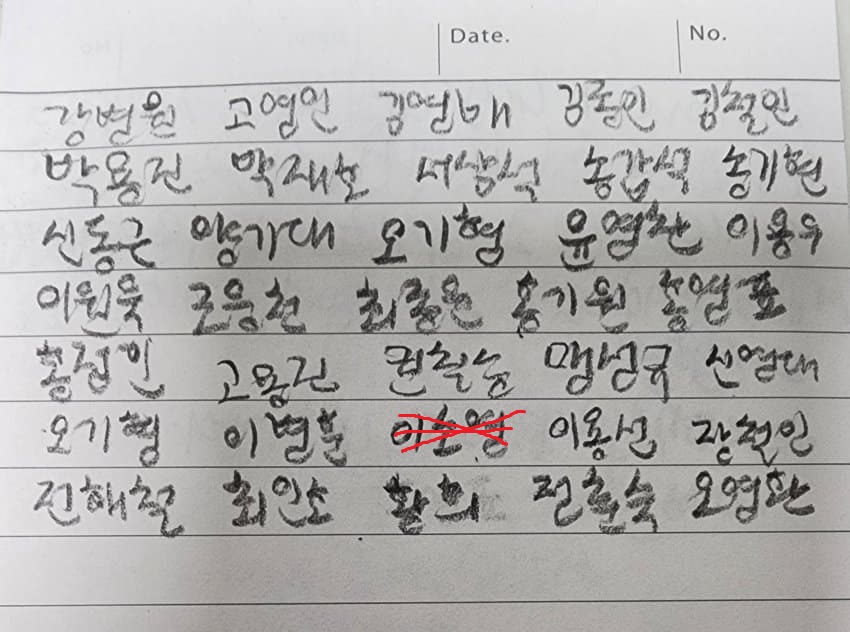 Date. No.
강병원 고영인 김영배 김종민 김철민
박용진 박재호 서삼석 송갑석 송기헌
신동근 양기대 오기형 윤영찬 이용우
이원욱 조응천 최종윤 홍기원 홍영표
홍정민 고용진 권칠승 맹성국 신영대
오기형 이병훈 이소영 이용선 장철민
전해철 최인호 황희 전혜숙 오영환